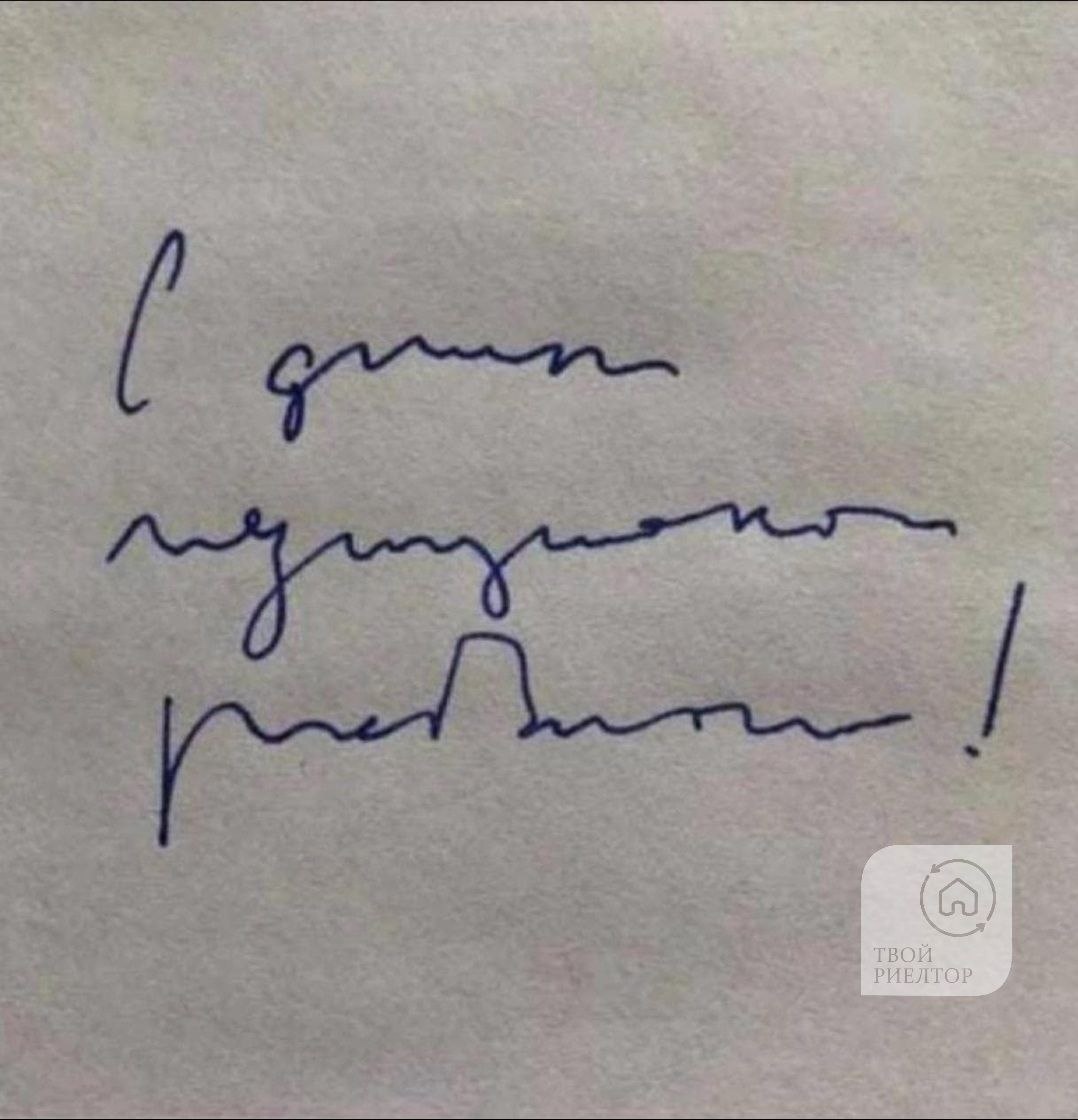 С днем
медицинского
работника!
ТВОЙ
РИЕЛТОР